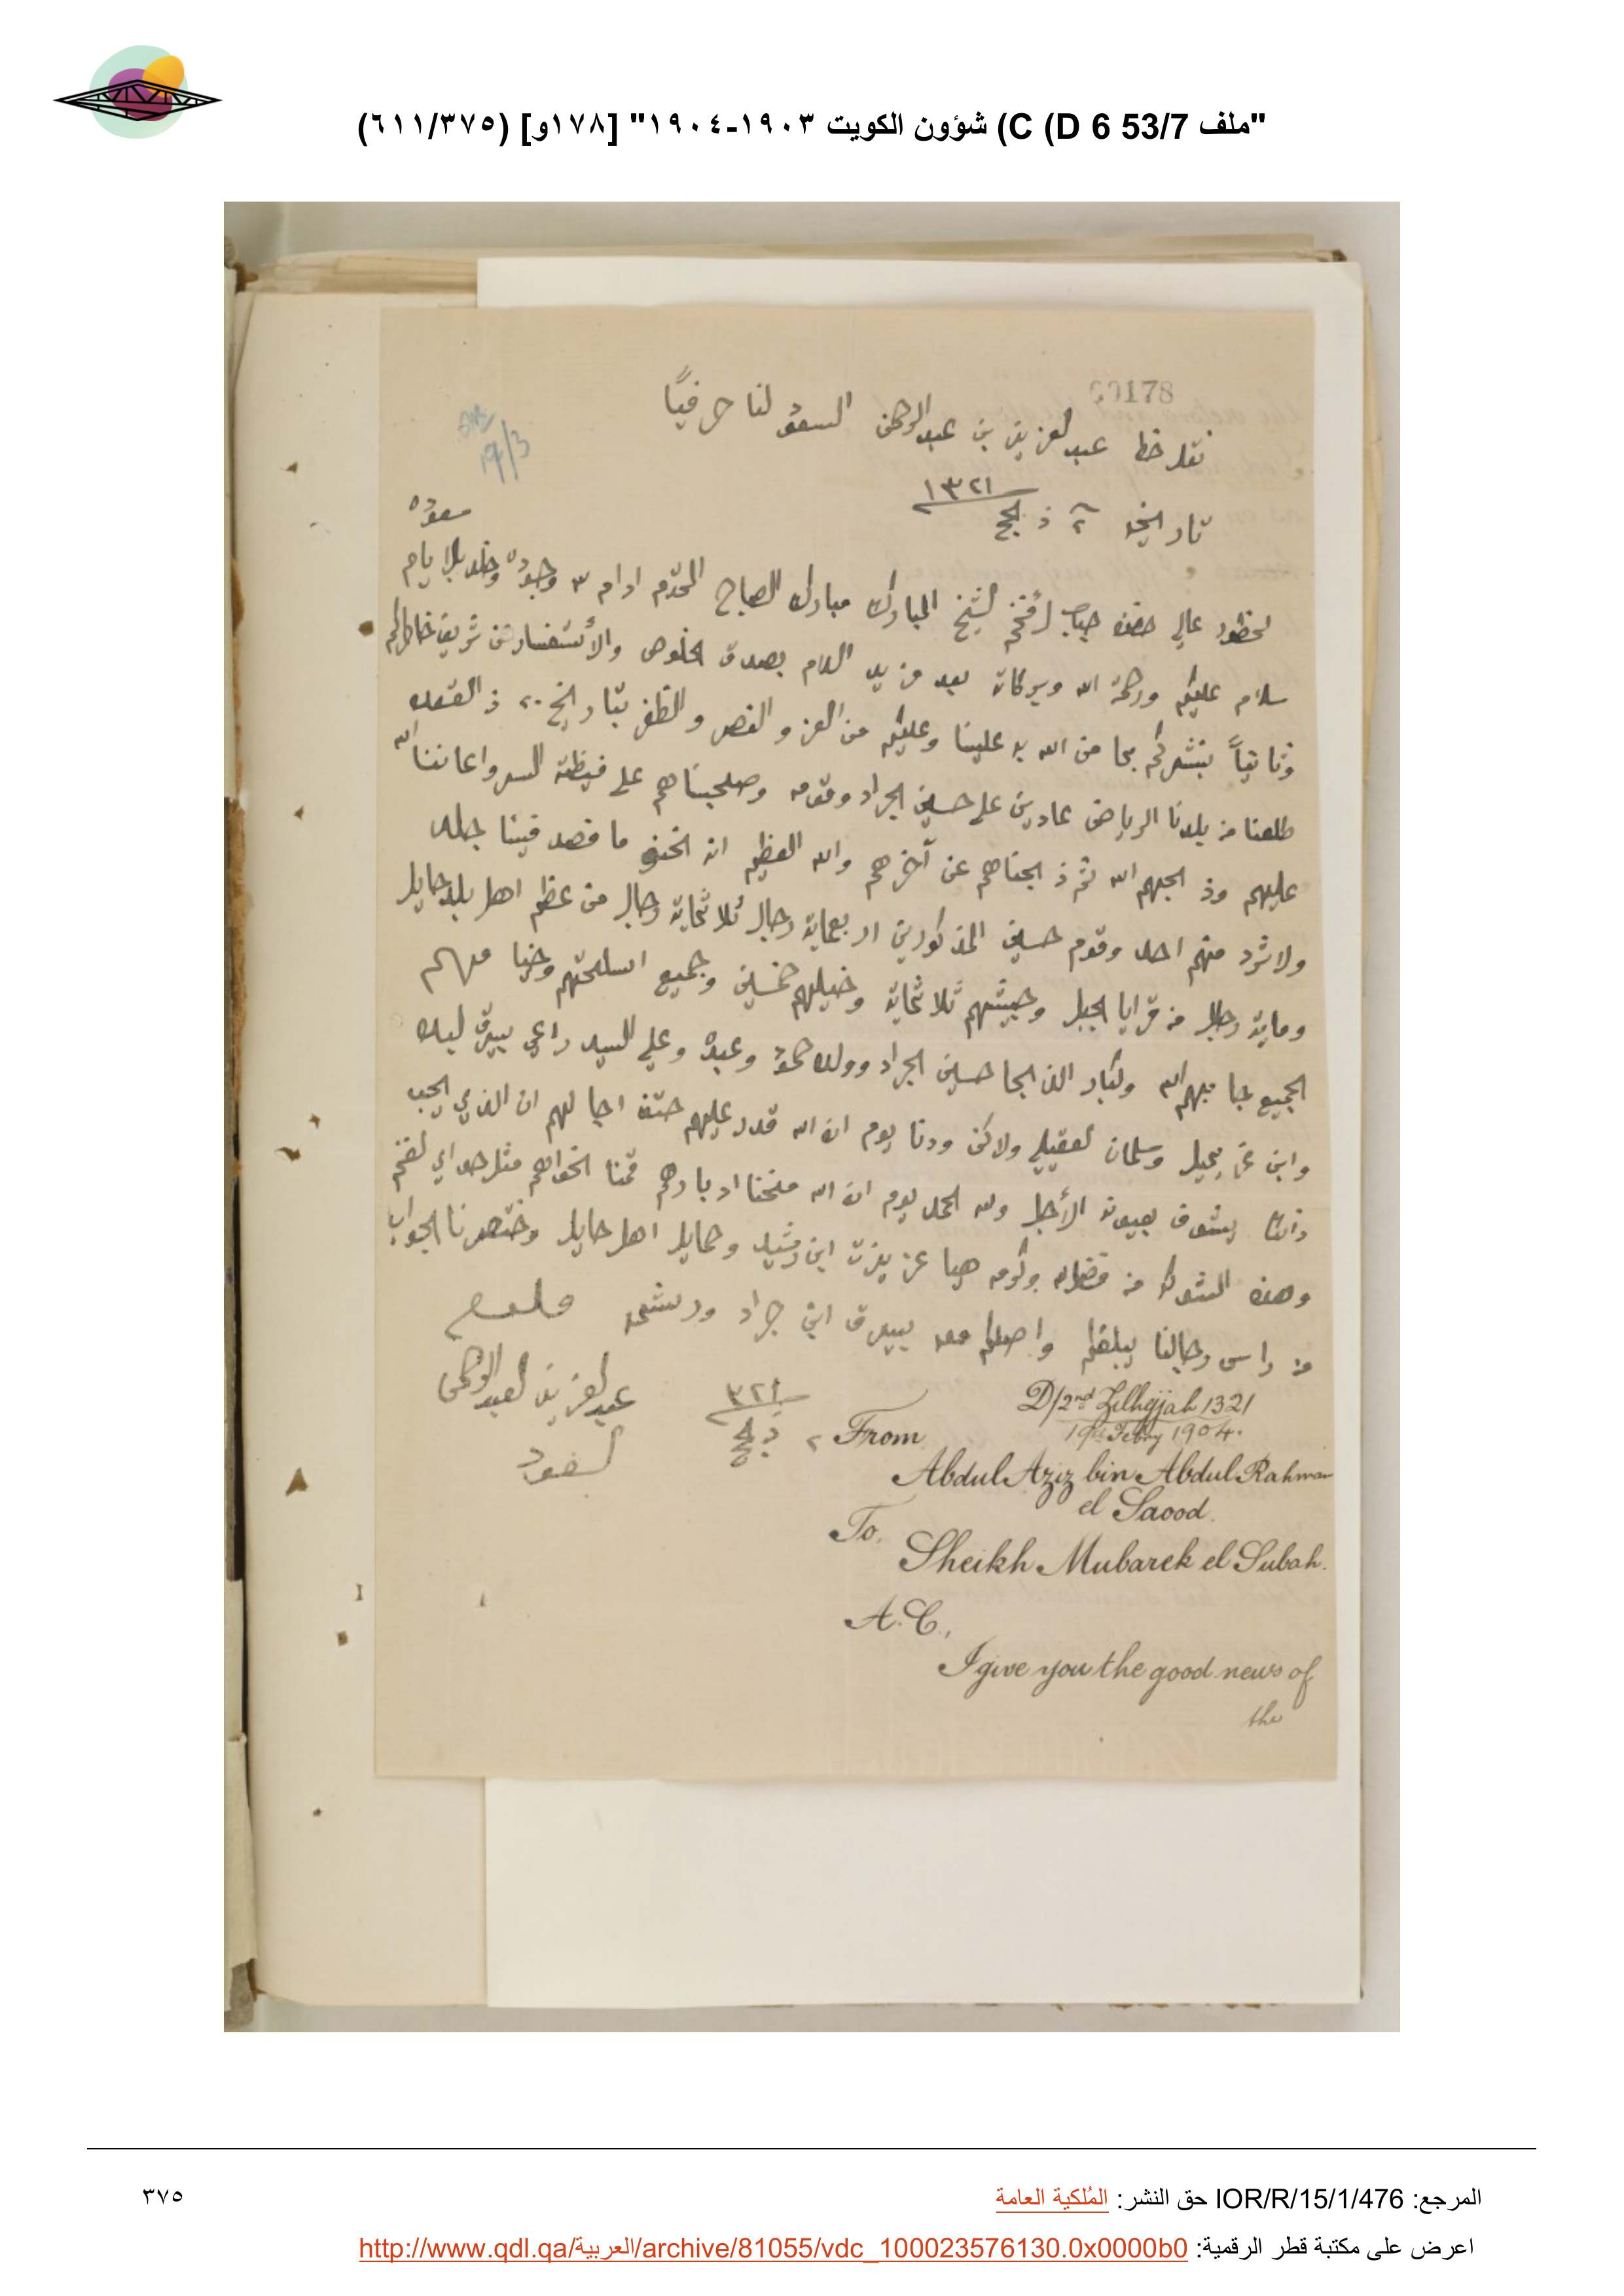 "ملف 53/7 C (D 6) شؤون الكويت ١٩٠٣-١٩٠٤" [١٧٨و] (٦١١/٣٧٥)
00178
19/3
نقل خط عبدالعزيز بن عبدالرحمن السعود لنا حرفيًا
تاريخه ٢ ذ الحج ١٣٢١
لحظور عالي حضرة جناب الأفخم الشيخ المبارك مبارك الصباح المحترم ادام الله وجوده
سلام عليكم ورحمة الله وبركاته بعد مزيد السلام بصدق الخلوص والأستفسار عن شريف خاطركم
وثانيًا نبشركم بما من الله به علينا وعليكم من العز والنصر والظفر بتاريخ ٢٠ ذ القعده
طلعنا من بلدنا الرياض عادين على حسين الجراد وقومه وصلحبناهم على فيظة السر واعاننا الله
عليهم وذ الجهم الله ثم ذ الجناهم عن آخرهم والله العظيم ما قصد فينا جمله
ولا شرد منهم احد وقوم حسين المذكورين اربعماية رجال ثلاثماية رجال من عظم اهل بلد حايل
وماية رجال من قرايا الجبل وجيشهم ثلاثماية وخيلهم خمسين وجميع اسلحتهم
الجميع جا بهم الله وكبار الذ الجا حسين الجراد وولده حمود وعبده وعلي السيد راعي بيرق
وابن وسلمان ولاكن ودنا يوم ان الله قدر عليهم ان الذي يحب
يشوف بعيونه ولله الحمد يوم ان الله منحنا ادبارهم
وهذه من فضل الله وكرمه عزيزت ابن رشيد وحمايل اهل حايل وختصرنا الجواب
من راس رجالنا يبلغكم واصلكم معه بيرق ابن جراد
عبدالعزيز العبدالرحمن
السعود
٢ ذ الحج ٣٢١
D/2nd Zilhijjah 1321
19th Febry 1904.
From
Abdul Aziz bin Abdul Rahman
el Saood.
To.
Sheikh Mubarek el Subah.
A.C.,
I give you the good news of
the
المرجع: IOR/R/15/1/476 حق النشر: المُلكية العامة
٣٧٥
اعرض على مكتبة قطر الرقمية: http://www.qdl.qa/العربية/archive/81055/vdc_100023576130.0x0000b0